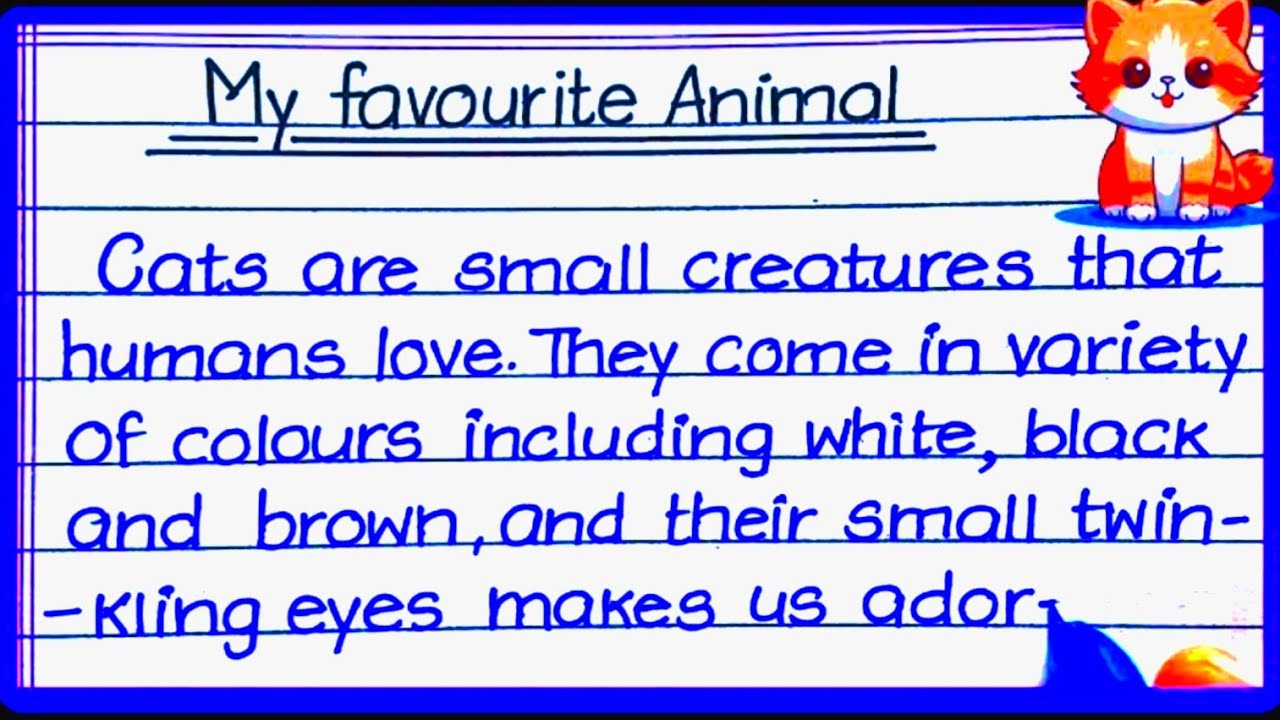 My favourite Animal
Cats are small creatures that
humans love. They come in variety
of colours including white, black
and brown, and their small twin-
-kling eyes makes us ador-